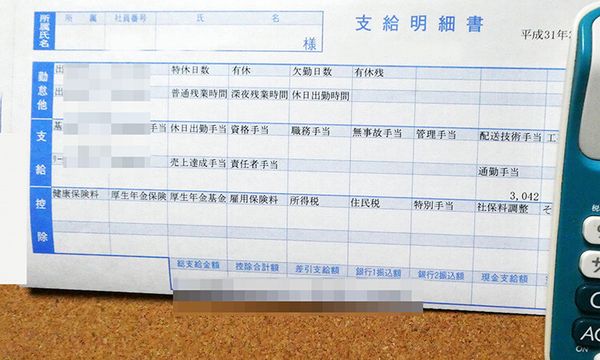 支給明細書
平成31年2
所属氏名 所 属 社員番号 氏 名
様
勤怠他 出 特休日数 有休 欠勤日数 有休残
普通残業時間 深夜残業時間 休日出勤時間
支給 基 手当 休日出勤手当 資格手当 職務手当 無事故手当 管理手当 配送技術手当 工
リー 売上達成手当 責任者手当 通勤手当
3,042
控除 健康保険料 厚生年金保険 厚生年金基金 雇用保険料 所得税 住民税 特別手当 社保料調整 そ
総支給金額 控除合計額 差引支給額 銀行1振込額 銀行2振込額 現金支給額
税
AC
ON